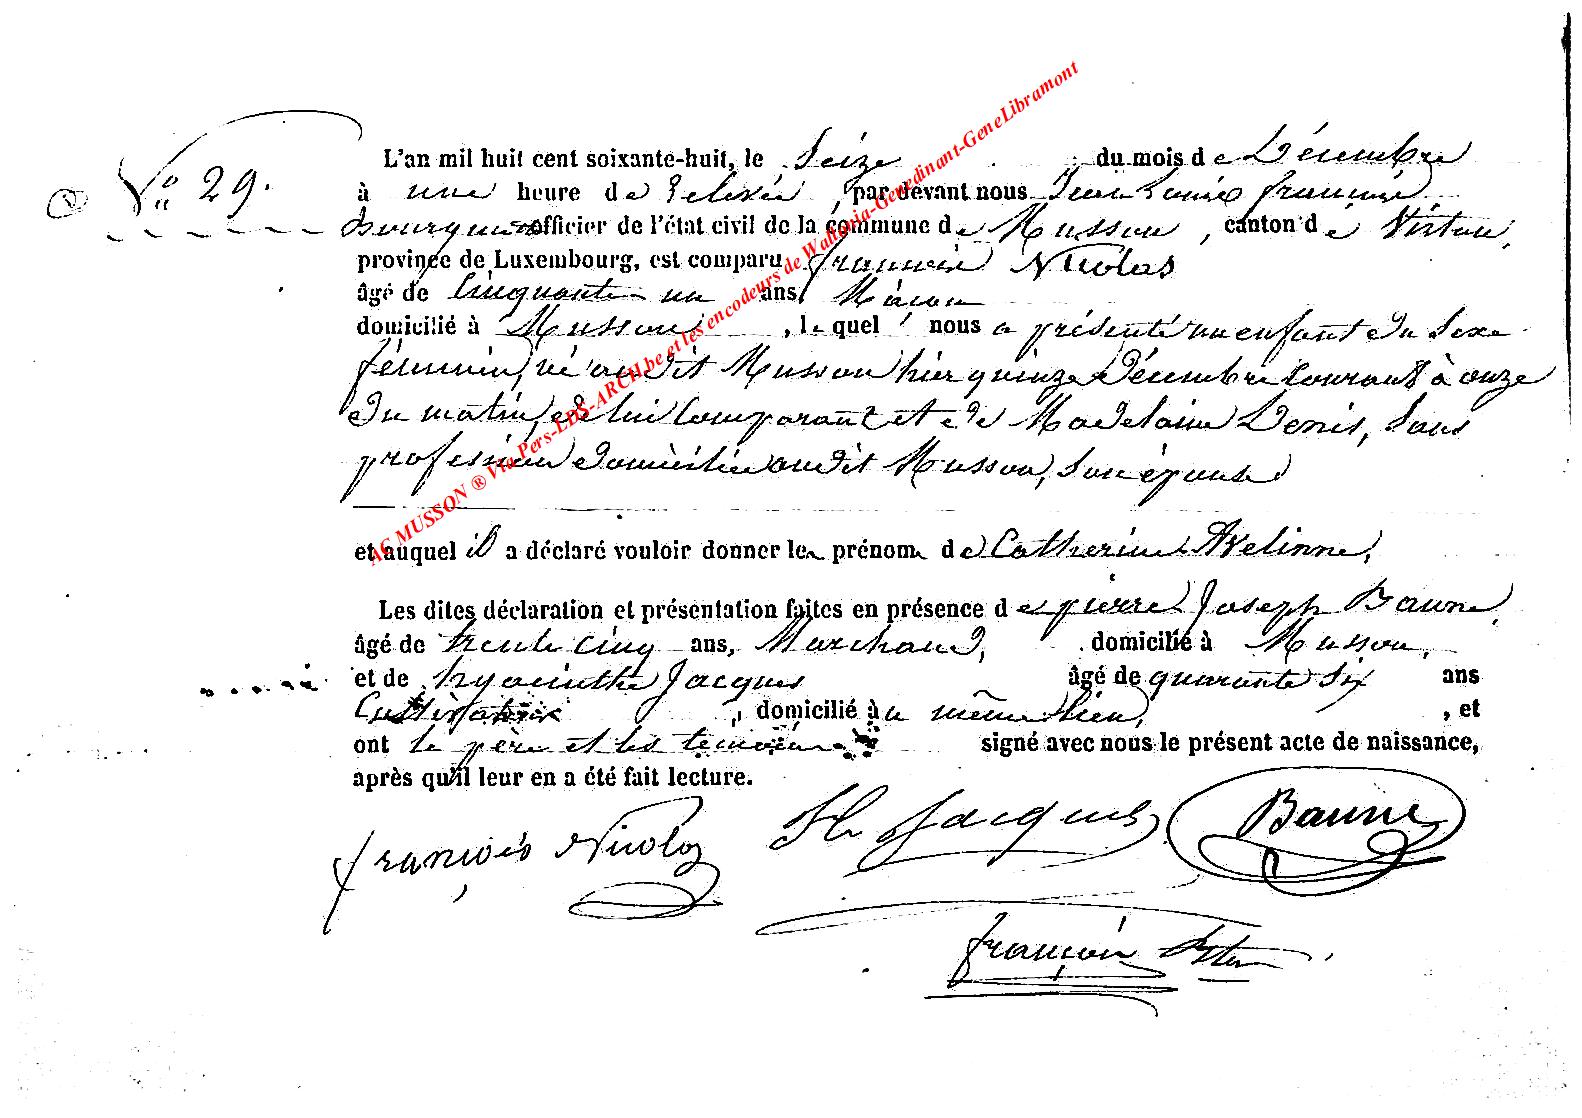 No 29.
L'an mil huit cent soixante-huit, le Seize du mois de Décembre
à une heure de relevée, par devant nous Jean Louis françois
officier de l'état civil de la commune de Musson, canton de Virton,
province de Luxembourg, est comparu françois Nicolas
âgé de Cinquante un ans, Maçon
domicilié à Musson, lequel nous a présenté un enfant du Sexe
féminin, né audit Musson hier quinze Décembre Courant à onze
du matin, de lui Comparant et de Madelaine Denis, Sans
profession domiciliée audit Musson, Son épouse
et auquel il a déclaré vouloir donner les prénoms de Catherine Avelinne,
Les dites déclaration et présentation faites en présence de pierre Joseph Baune,
âgé de trente cinq ans, Marchand, domicilié à Musson,
et de hyacinthe Jacques âgé de quarante Six ans
Cultivateur, domicilié au même lieu, et
ont le père et les témoins signé avec nous le présent acte de naissance,
après qu'il leur en a été fait lecture.
françois Nicolas H Jacques Baune
françois
AC MUSSON ® Via Pers-LDS-ARCH.be et les encodeurs de Wallonia-Genedinant-GeneLibramont